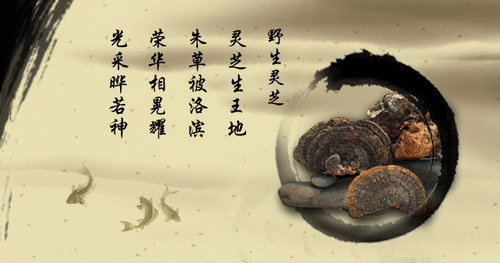 野生灵芝
灵芝生王地
朱草被洛滨
荣华相晃耀
光采晔若神